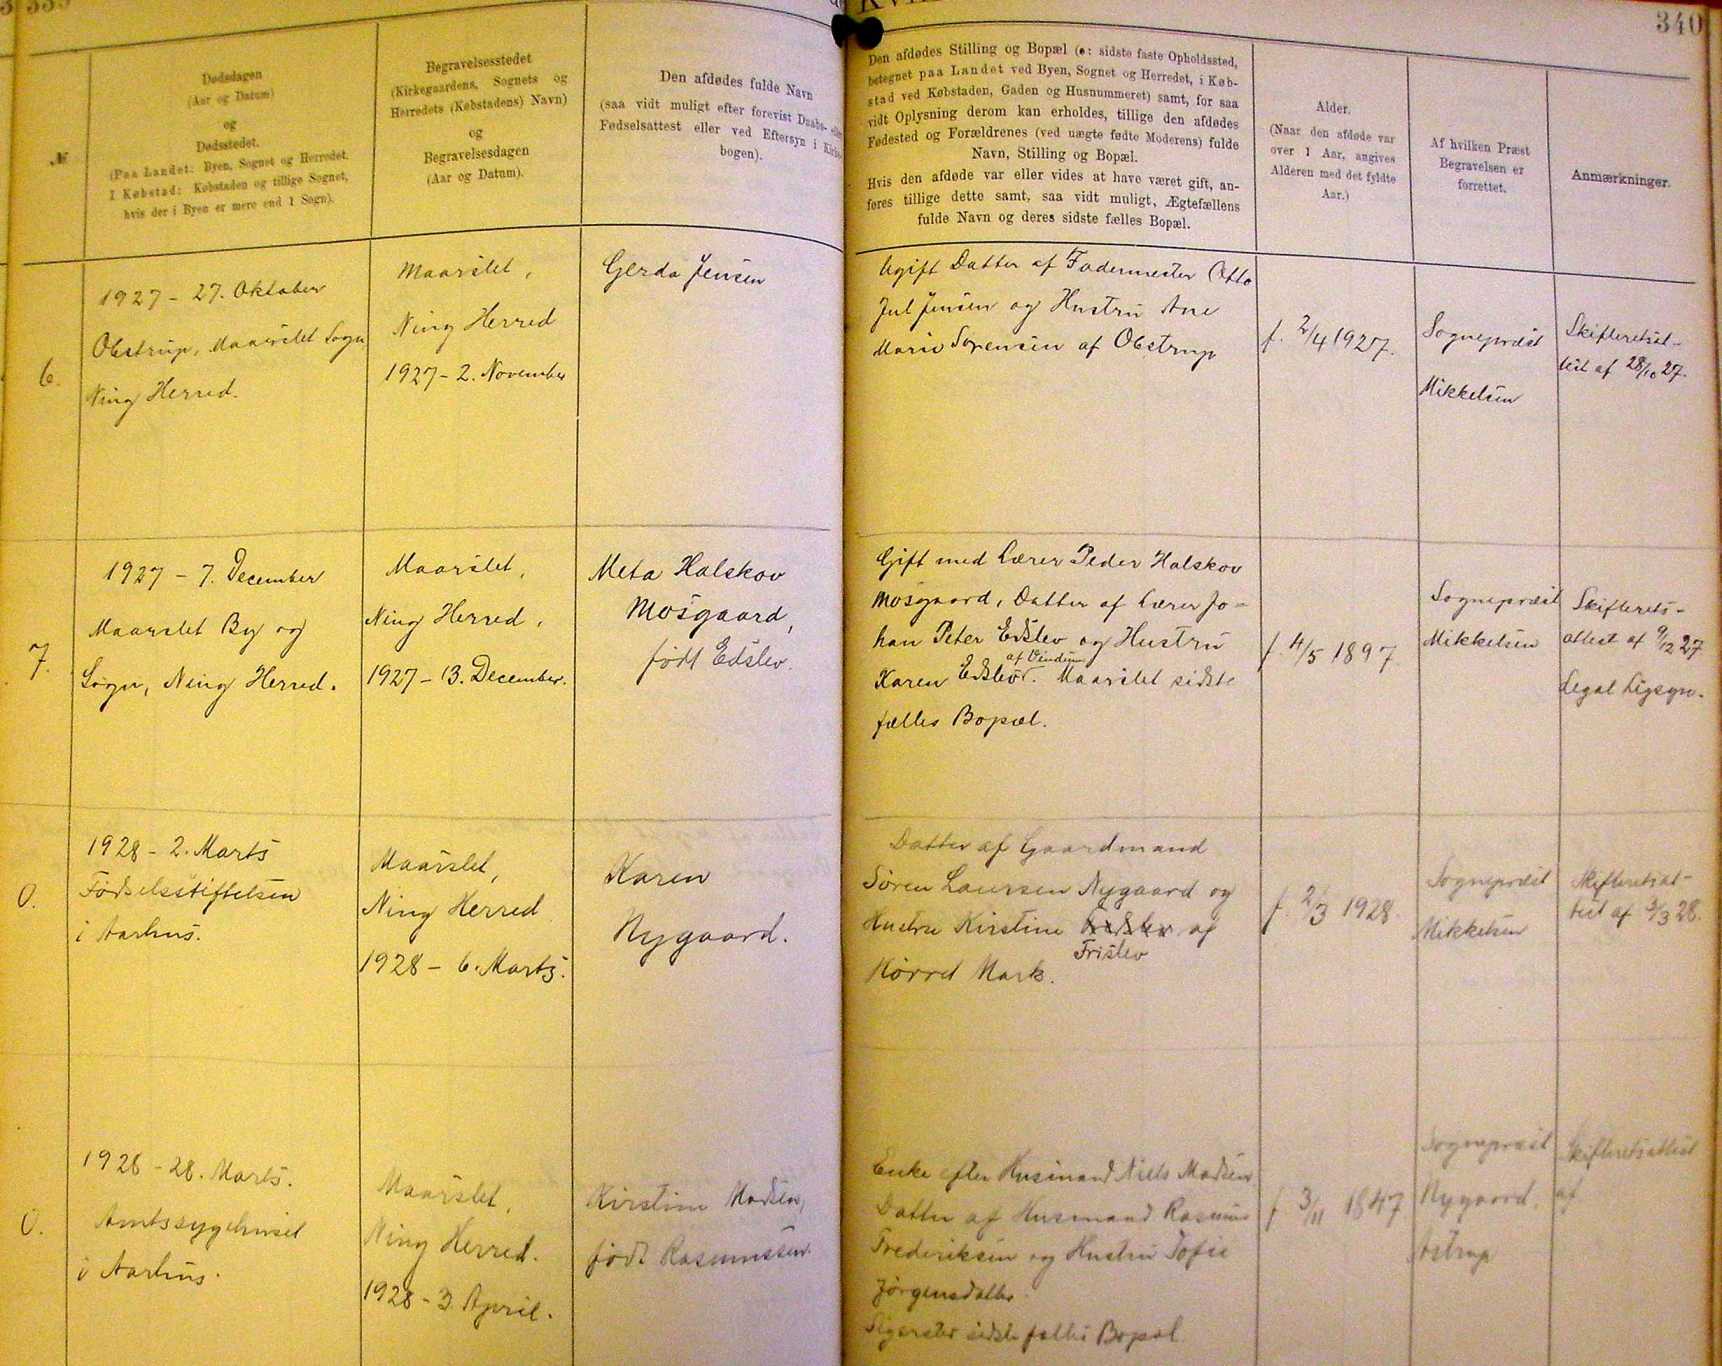 339
340
№
Dødsdagen
(Aar og Datum)
og
Dødsstedet.
(Paa Landet: Byen, Sognet og Herredet.
I Købstad: Købstaden og tillige Sognet,
hvis der i Byen er mere end 1 Sogn).
Begravelsesstedet
(Kirkegaardens, Sognets og
Herredets (Købstadens) Navn)
og
Begravelsesdagen
(Aar og Datum).
Den afdødes fulde Navn
(saa vidt muligt efter forevist Daabs- eller
Fødselsattest eller ved Eftersyn i Kirke-
bogen).
Den afdødes Stilling og Bopæl (ɔ: sidste faste Opholdssted,
betegnet paa Landet ved Byen, Sognet og Herredet, i Køb-
stad ved Købstaden, Gaden og Husnummeret) samt, for saa
vidt Oplysning derom kan erholdes, tillige den afdødes
Fødested og Forældrenes (ved uægte fødte Moderens) fulde
Navn, Stilling og Bopæl.
Hvis den afdøde var eller vides at have været gift, an-
føres tillige dette samt, saa vidt muligt, Ægtefællens
fulde Navn og deres sidste fælles Bopæl.
Alder.
(Naar den afdøde var
over 1 Aar, angives
Alderen med det fyldte
Aar.)
Af hvilken Præst
Begravelsen er
forrettet.
Anmærkninger.
6.
1927 - 27. Oktober
Obstrup, Maarslet Sogn
Ning Herred.
Maarslet,
Ning Herred
1927 - 2. November
Gerda Jensen
Ugift Datter af Fodermester Otto
Jul Jensen og Hustru Ane
Marie Sørensen af Obstrup
f. 2/4 1927.
Sognepræst
Mikkelsen
Skifteretsat-
test af 28/10 27.
7.
1927 - 7. December
Maarslet By og
Sogn, Ning Herred.
Maarslet,
Ning Herred,
1927 - 13. December.
Meta Halskov
Mosgaard,
født Edslev.
Gift med Lærer Peder Halskov
Mosgaard, Datter af Lærer Jo-
han Peter Edslev og Hustru
af Vindum
Karen Edslev. Maarslet sidste
fælles Bopæl.
f. 4/5 1897
Sognepræst
Mikkelsen
Skifterets-
attest af 9/12 27
Legal Ligsyn.
0.
1928 - 2. Marts
Fødselsstiftelsen
i Aarhus.
Maarslet,
Ning Herred
1928 - 6. Marts.
Karen
Nygaard.
Datter af Gaardmand
Søren Laursen Nygaard og
Hustru Kirstine af
Frislev
Hørret Mark.
f. 2/3 1928.
Sognepræst
Mikkelsen
Skifteretsat-
test af 3/3 28.
0.
1928 - 28. Marts.
Amtssygehuset
i Aarhus.
Maarslet,
Ning Herred.
1928 - 3. April.
Kirstine Madsen,
født Rasmussen.
Enke efter Husmand Niels Madsen
Datter af Husmand Rasmus
Frederiksen og Hustru Sofie
Jørgensdatter.
sidste fælles Bopæl
f 3/11 1847
Sognepræst
Nygaard,
Astrup
Skifteretsattest
af